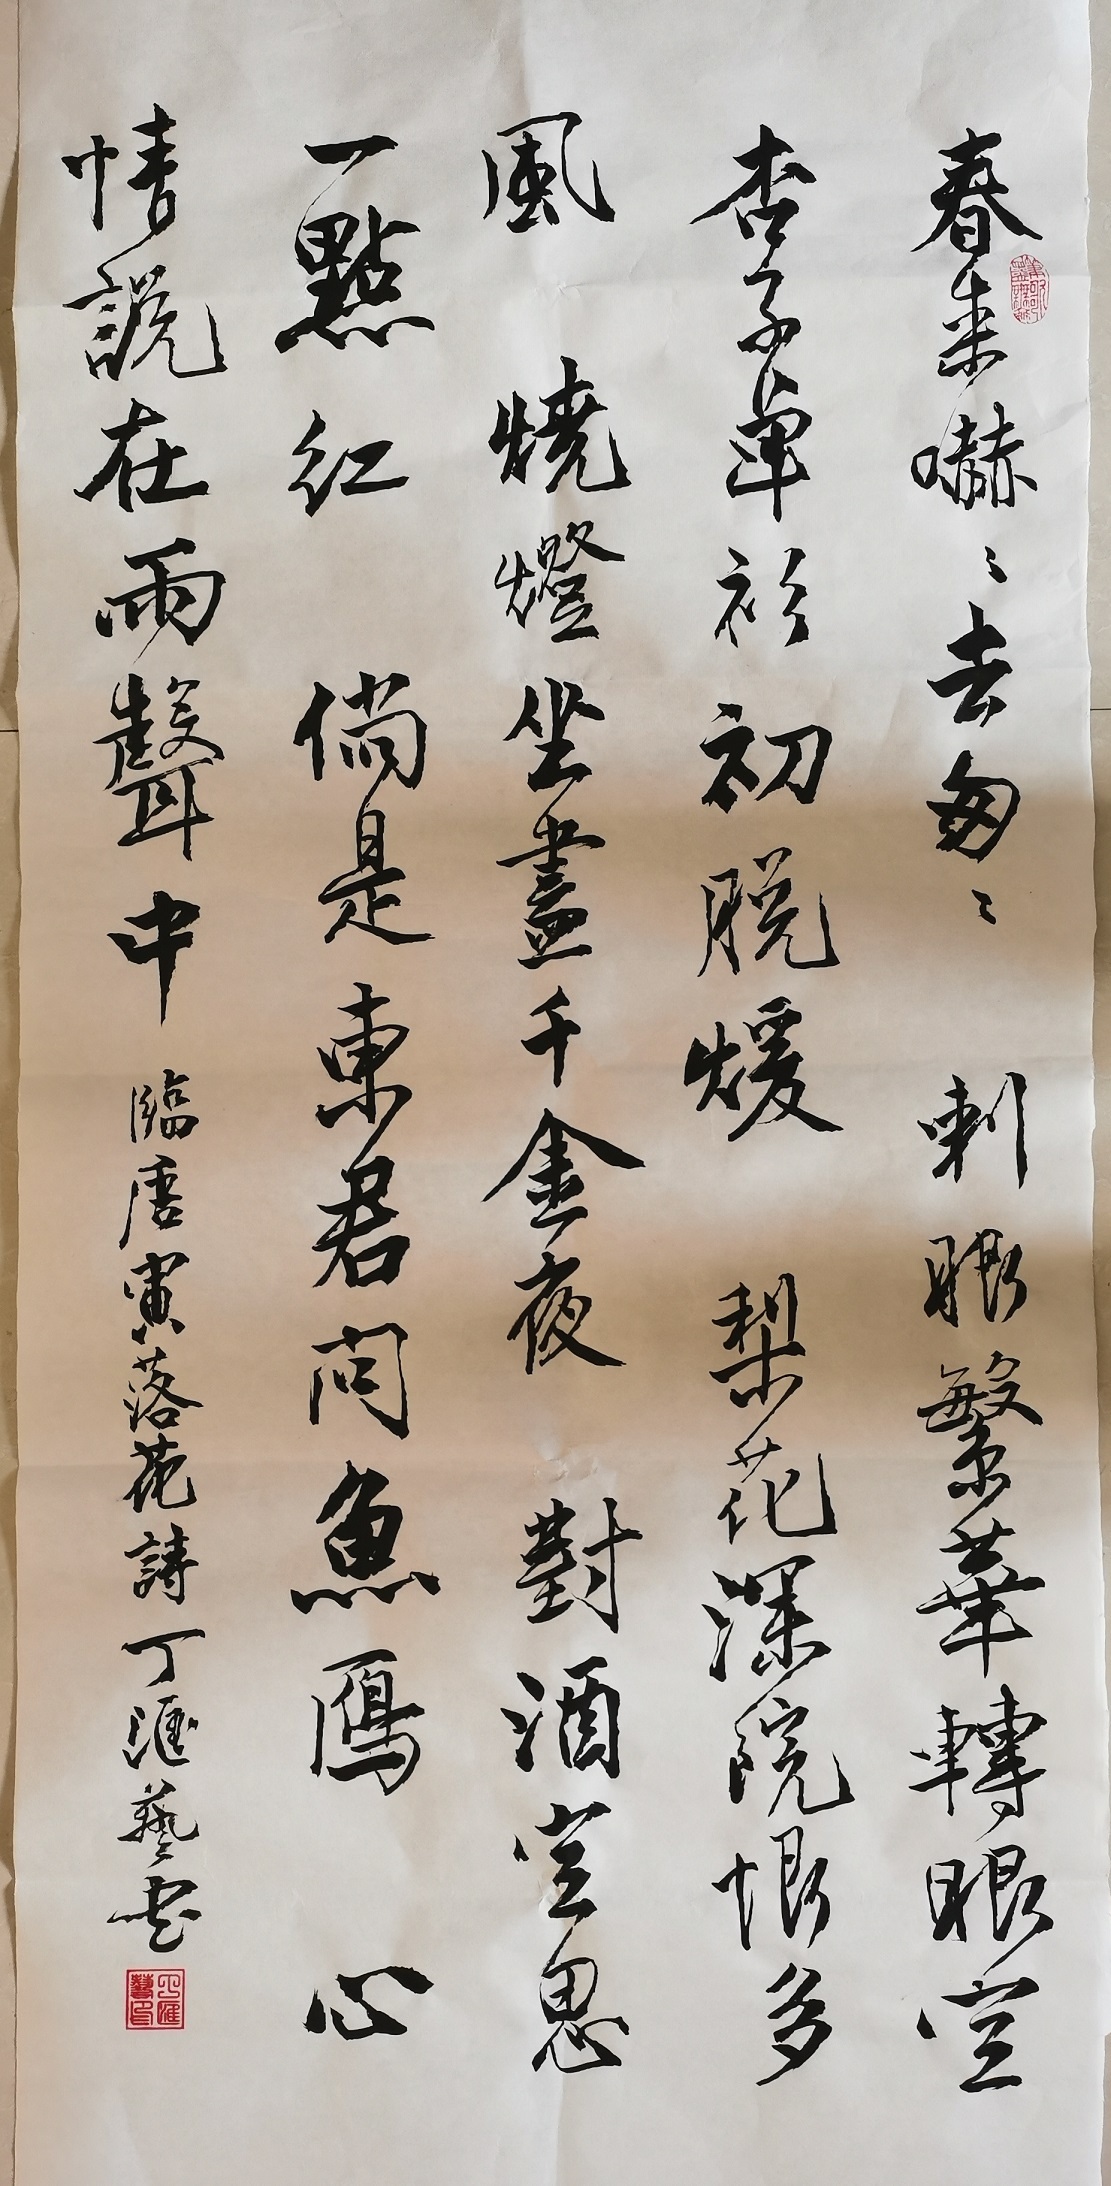 春來嚇〻去匆〻刺眼繁華轉眼空
杏子單衫初脫煖梨花深院恨多
風燒燈坐盡千金夜對酒空思
一點紅倘是東君問魚鴈心
情說在雨聲中
臨唐寅落花詩丁滙藝書